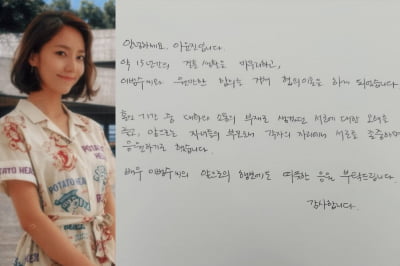 안녕하세요. 이윤진입니다.
약 15년간의 결혼 생활을 마무리하고,
이범수씨와 원만한 합의를 거쳐 협의이혼을 하게 되었습니다.
기간 중 대화와 소통의 부재로 생겼던 서로에 대한 오해를
풀고, 앞으로는 자녀들의 부모로서 각자의 자리에서 서로 존중하며
응원하기로 했습니다.
배우 이범수씨의 앞으로의 행보에도 따뜻한 응원 부탁드립니다.
감사합니다.
POTATO HEAD